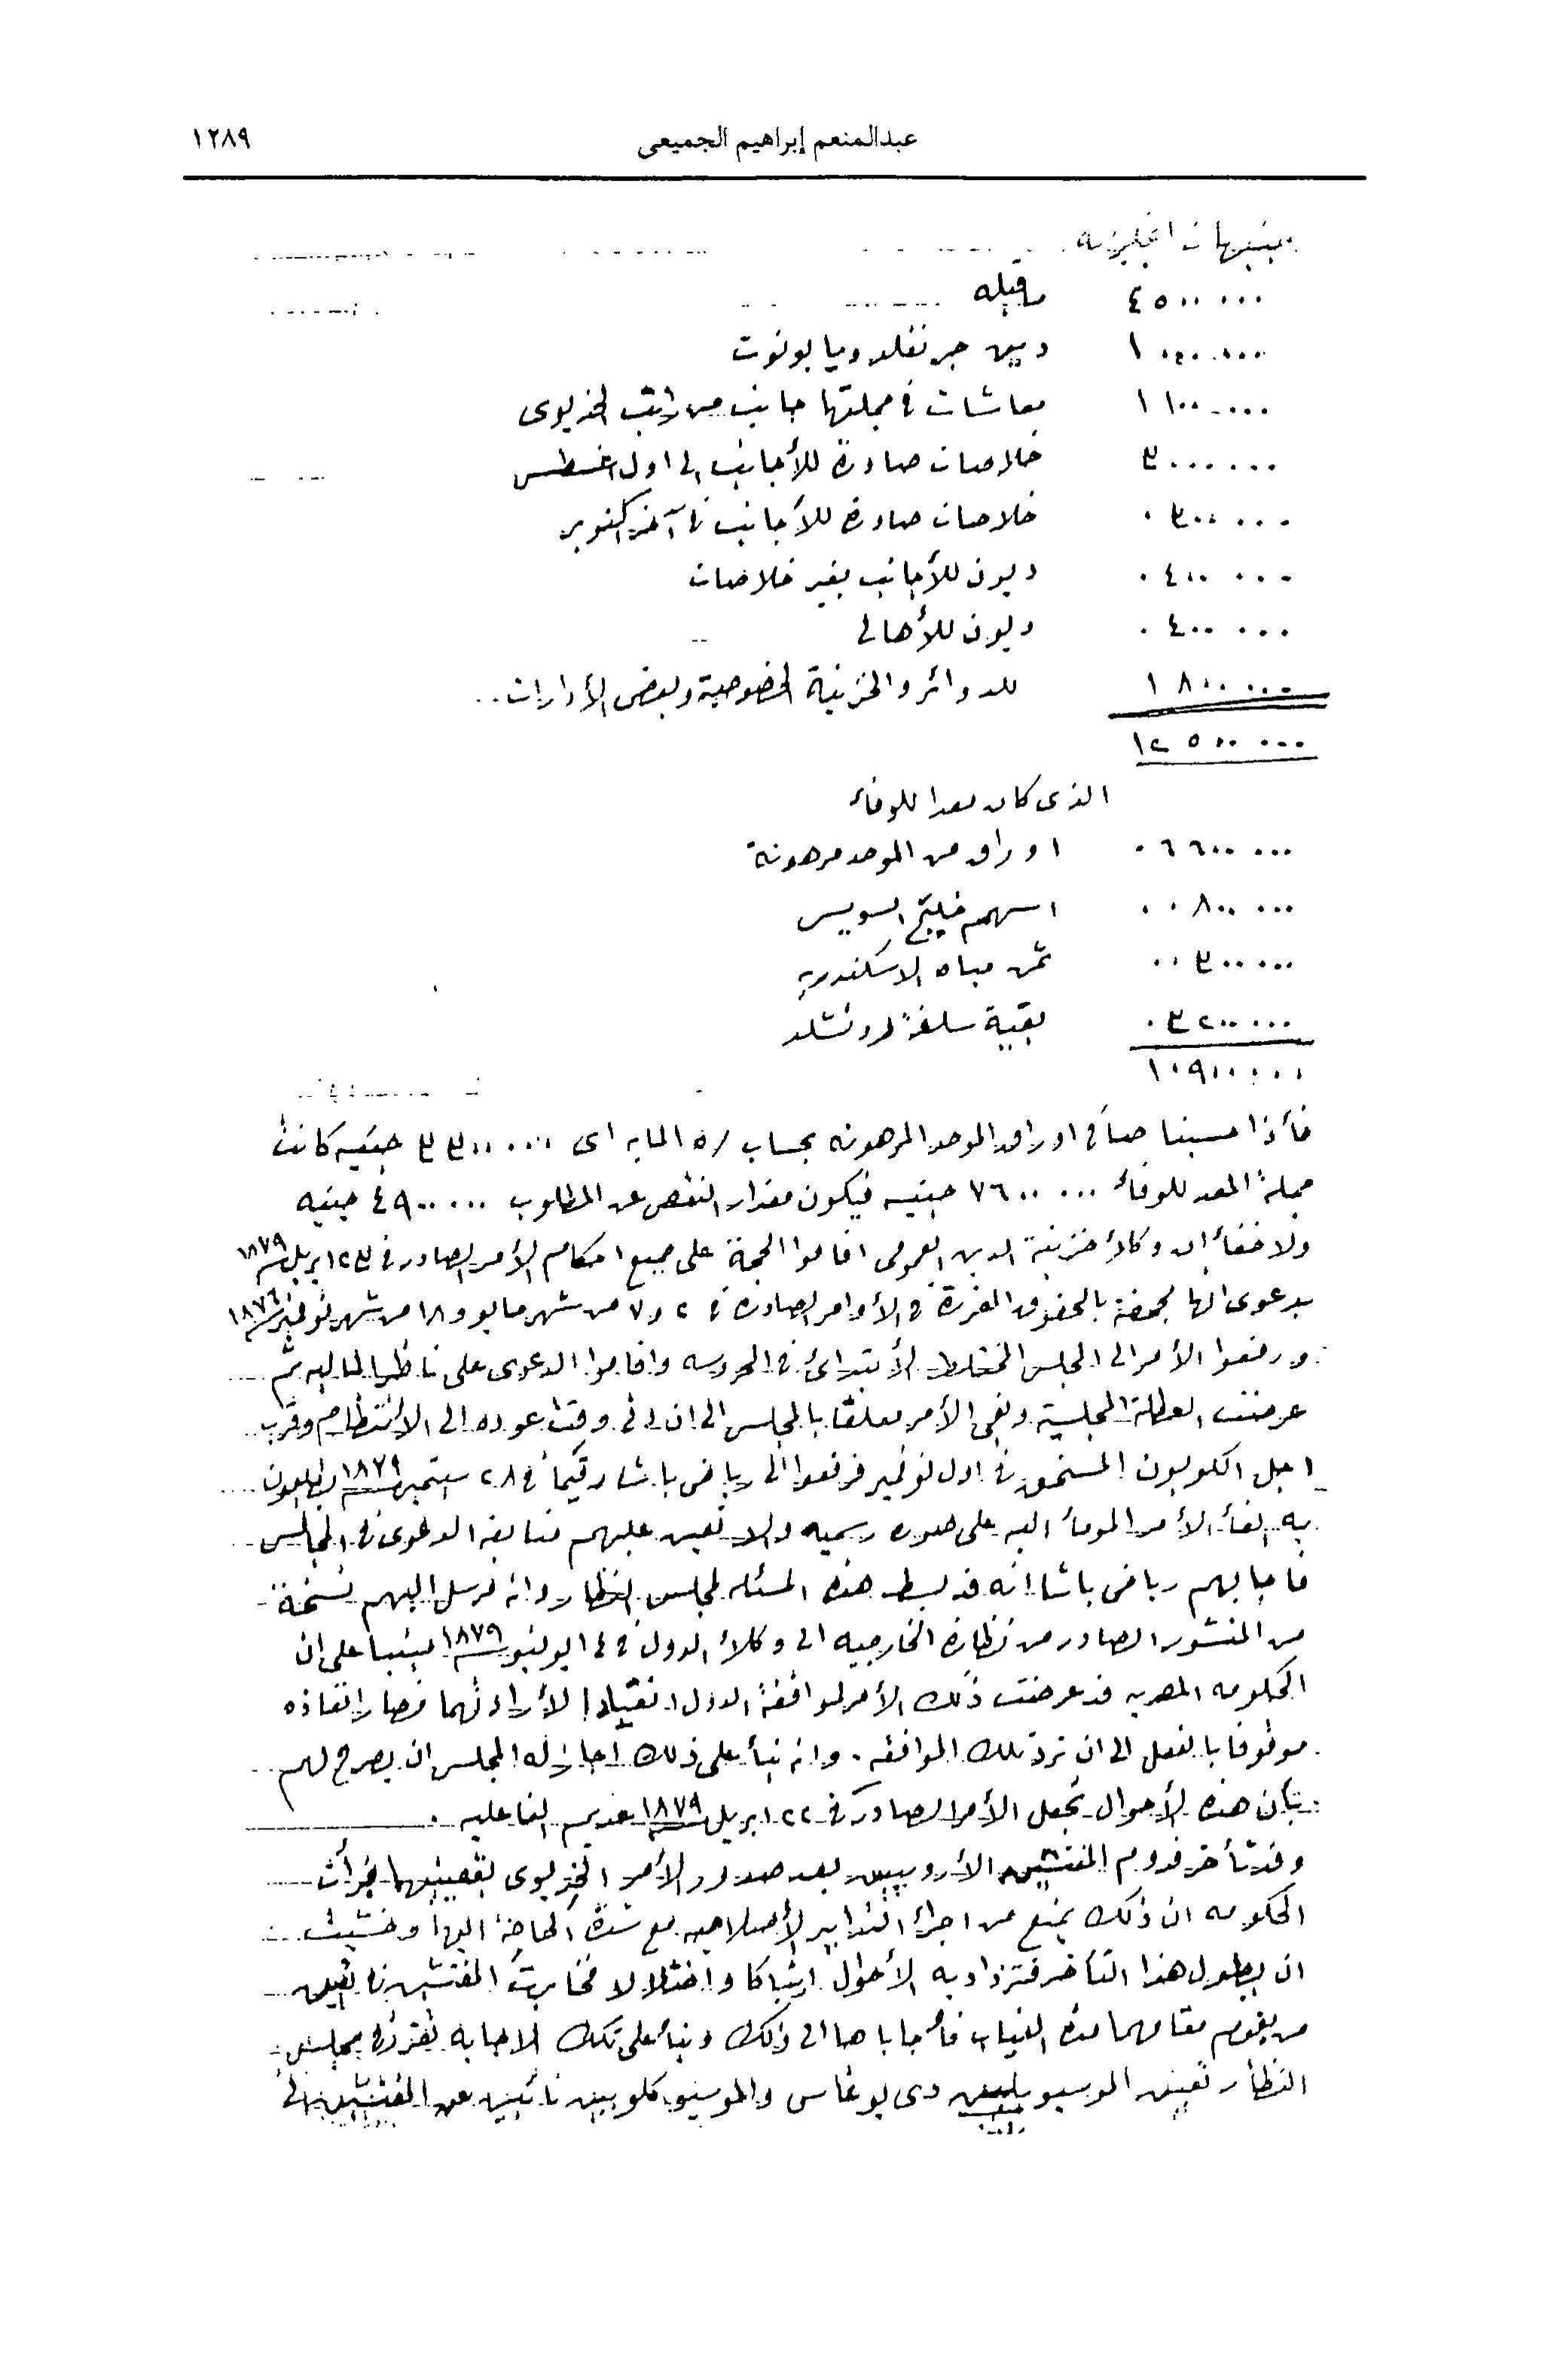 عبدالمنعم إبراهيم الجميعى ١٢٨٩
جنيهات انجليزيه
٤٥٠٠٠٠٠ ماقبله
دين جرنفلد وپابونوت
١١٠٠٠٠٠ معاشات فى جملتها جانب من راتب الخديوى
٣٠٠٠٠٠٠ خلاصات صادرة للأجانب الى اول اغسطس
٠٣٠٠٠٠٠ خلاصات صادرة للأجانب فى آخر اكتوبر
٠٤٠٠٠٠٠ ديون للأجانب بغير خلاصات
٠٤٠٠٠٠٠ ديون للأهالى
١٨٠٠٠٠٠ للدوائر والخزينة الخصوصية وبعض الأدارات
١٢٥٠٠٠٠٠
الذى كان معدا للوفاء
٠٦٦٠٠٠٠٠ اوراق من الموحد مرهونة
٠٠٨٠٠٠٠٠ اسهم خليج السويس
٠٠٣٠٠٠٠٠ ثمن مياه الاسكندريه
٠٣٢٠٠٠٠٠ بقية سلفة روتشلد
١٠٩٠٠٠٠٠
فأذا حسبنا صافى اوراق الموحد المرهونه بحساب ٥٠ المايه اى ٣٣٠٠٠٠٠ جنيه كانت
جملة المعد للوفاء ٧٦٠٠٠٠٠ جنيه فيكون مقدار النقص عن المطلوب ٤٩٠٠٠٠٠ جنيه
ولا خفاء ان وكلاء خزينة الدين العمومى اقاموا الحجة على جميع احكام الأمر الصادر فى ابريل ١٨٧٩
بدعوى انها مجحفة بالحقوق المقررة فى الأوامر الصادرة فى ٢ و٧ من شهر مايو و١٨ من شهر نوفمبر ١٨٧٦
ورفعوا الأمر الى المجلس المختلط الأبتدائى فى المحروسه واقاموا الدعوى على ناظر الماليه ثم
عرضت العطلة المجلسية وبقى الأمر معلقا بالمجلس الى ان وقت عوده الى الأنتظام وقرب
اجل الكوبون المستحق فى اول نوفمبر فرفعوا الى رياض باشا رقيما فى ٢٨ سبتمبر ١٨٧٩ يطلبون
به الغاء الأمر المومأ اليه على صوره رسميه والا تعين عليهم متابعة الدعوى فى المجلس
فاجابهم رياض باشا انه قد بسط هذه المسئله لمجلس النظار وانه مرسل اليهم نسخة
من المنشور الصادر من نظارة الخارجيه الى وكلاء الدول فى ١٤ يونيو ١٨٧٩ مبنيا على ان
الحكومه المصريه قد عرضت ذلك الأمر لموافقة الدول انقيادا لأرادتها فصار انفاذه
موقوفا بالفعل الى ان ترد تلك الموافقه . وانه بناء على ذلك اجاز له المجلس ان يصرح لهم
بأن هذه الأحوال تجعل الأمر الصادر فى ٢٢ ابريل ١٨٧٩ عديم الفاعليه .
وقد تأخر قدوم المفتشين الأروبيين بعد صدور الأمر الخديوى بتعيينهما فرأت
الحكومه ان ذلك يمنع من اجراء التدابير الأصلاحيه مع شدة الحاجة اليها وخشيت
ان يطول هذا التأخر فتزداد به الأحوال ارتباكا واختلالا فخابرت المفتشين فى تعيين
من يقوم مقامهما مدة الغياب فأجاباها الى ذلك وبناء على تلك الاجابه تقرر فى مجلس
النظار تعيين المسيو بليس دى بوغاس والموسيو كلوبين نائبين عن المفتشين الى